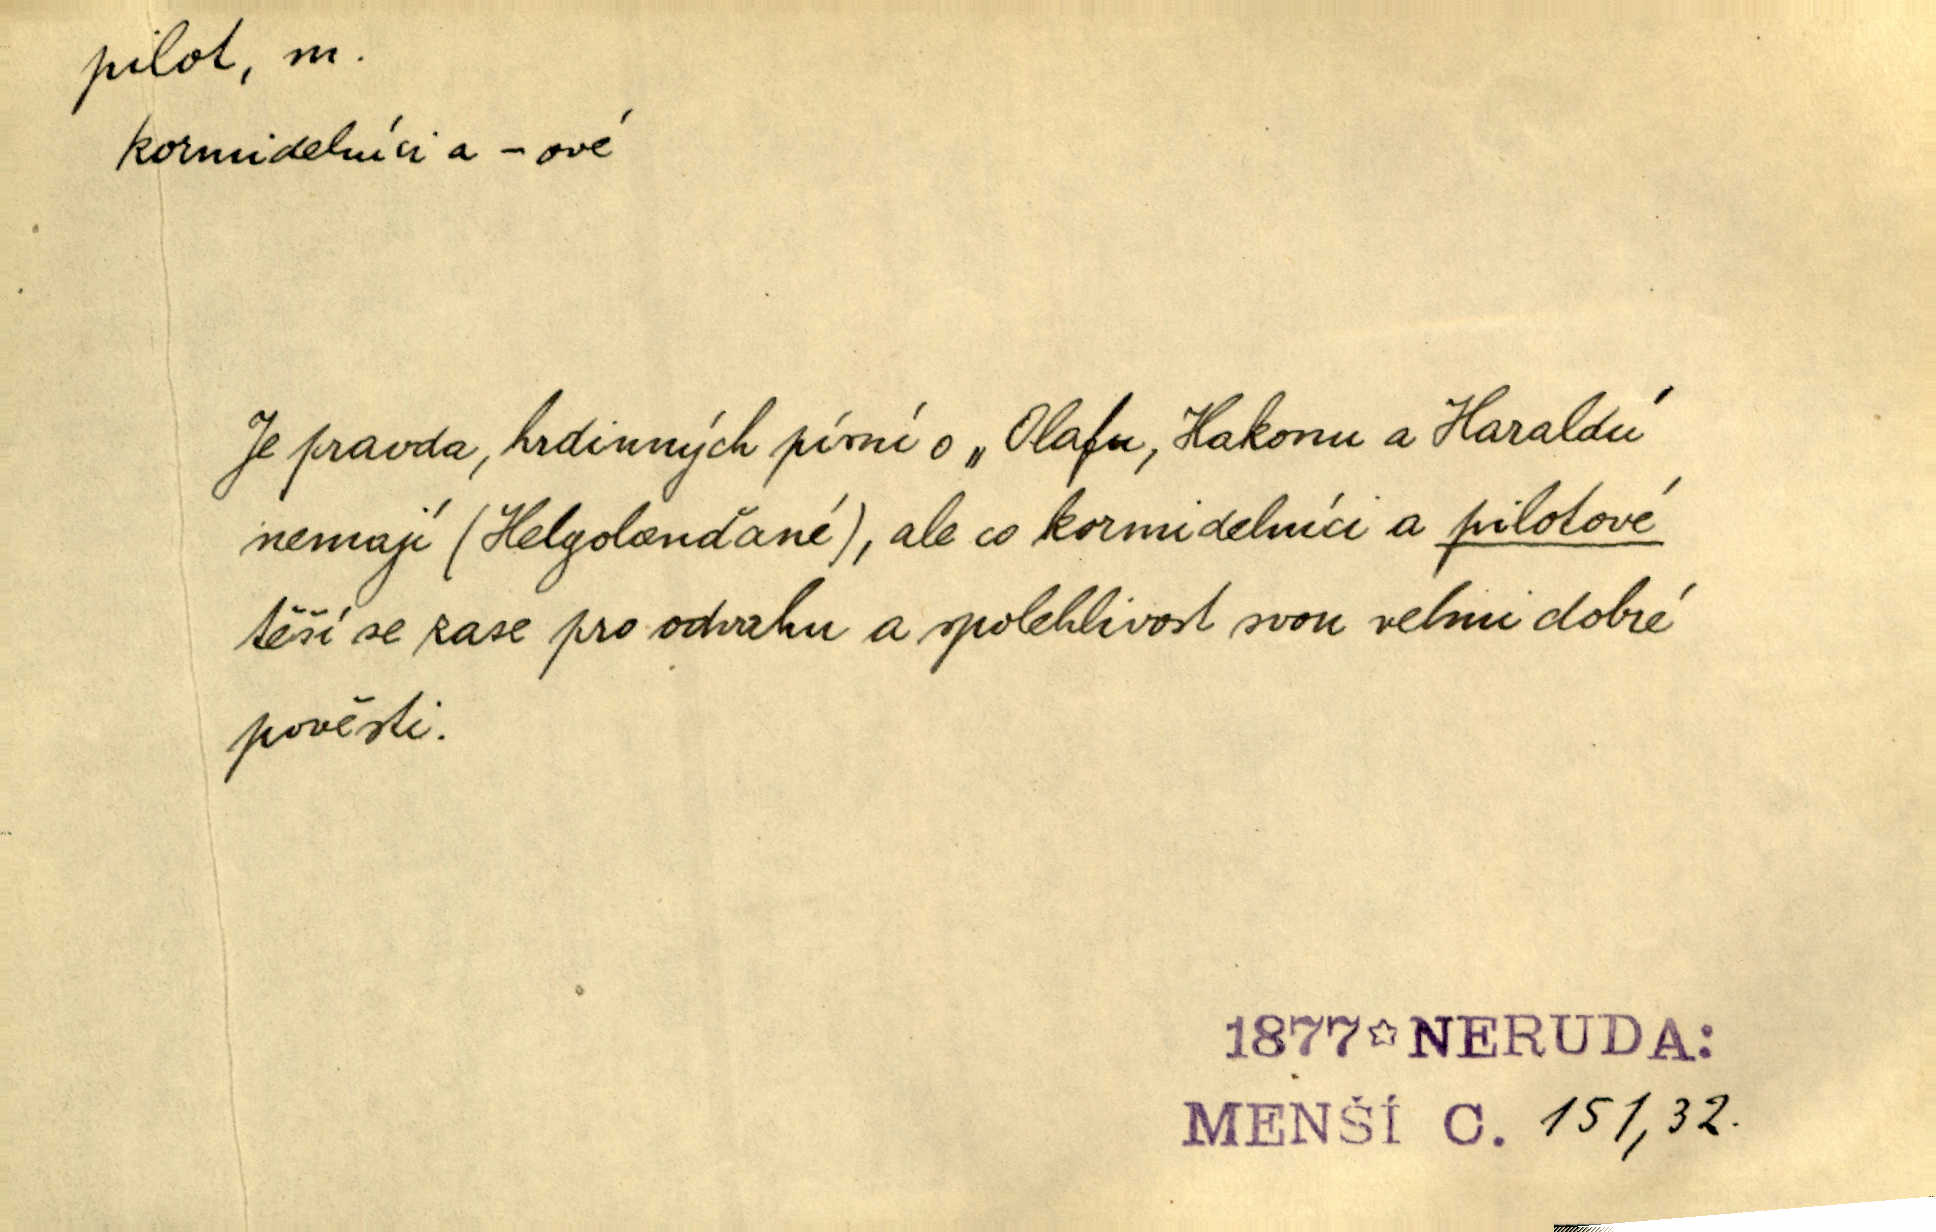 pilot, m.
kormidelníci a – ové
Je pravda, hrdinných písní o „Olafu, Hakonu a Haraldu"
nemají (Helgolanďané), ale co kormidelníci a pilotové
těší se zase pro odvahu a spolehlivost svou velmi dobré
pověsti.
1877☆NERUDA:
MENŠÍ C. 151,32.